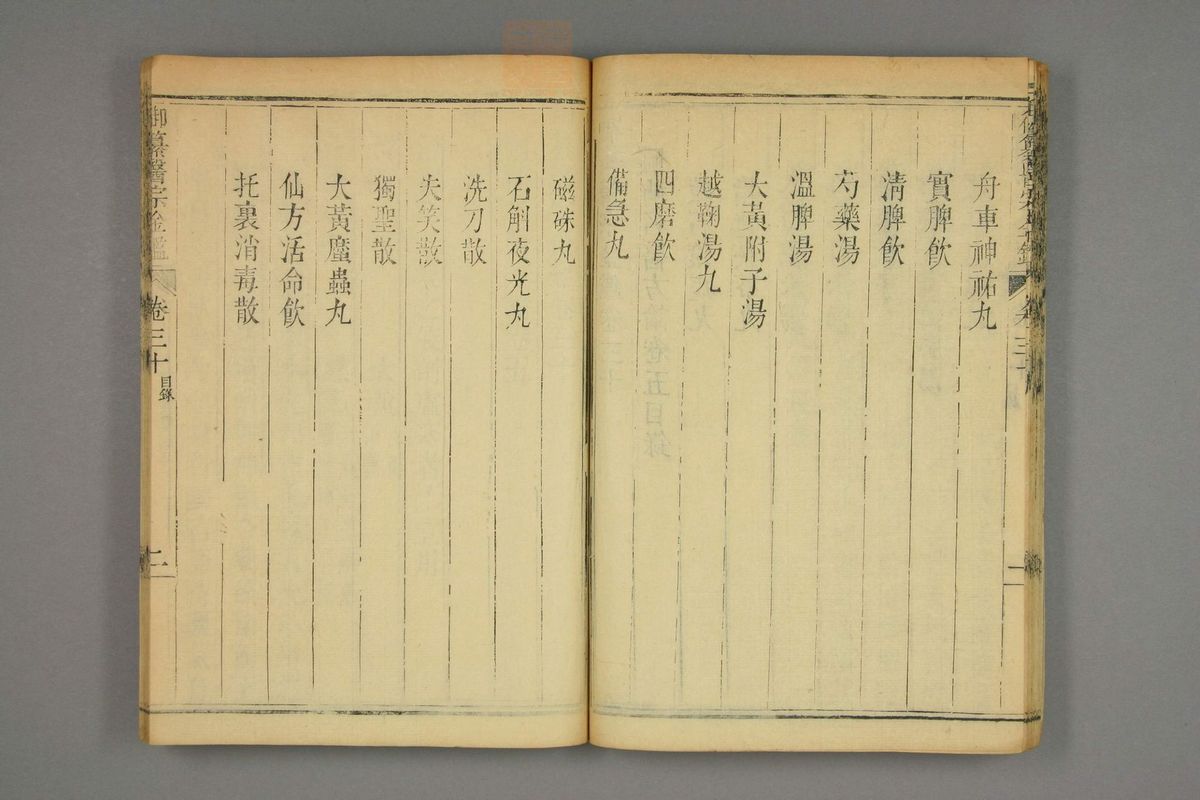 舟車神祐丸
實脾飮
清脾飮
芍藥湯
溫脾湯
大黃附子湯
越鞠湯丸
四磨飮
備急丸
磁硃丸
石斛夜光丸
洗刀散
失笑散
獨聖散
大黃䗪蟲丸
仙方活命飮
托裏消毒散
御纂醫宗金鑑
卷三十
目錄
二